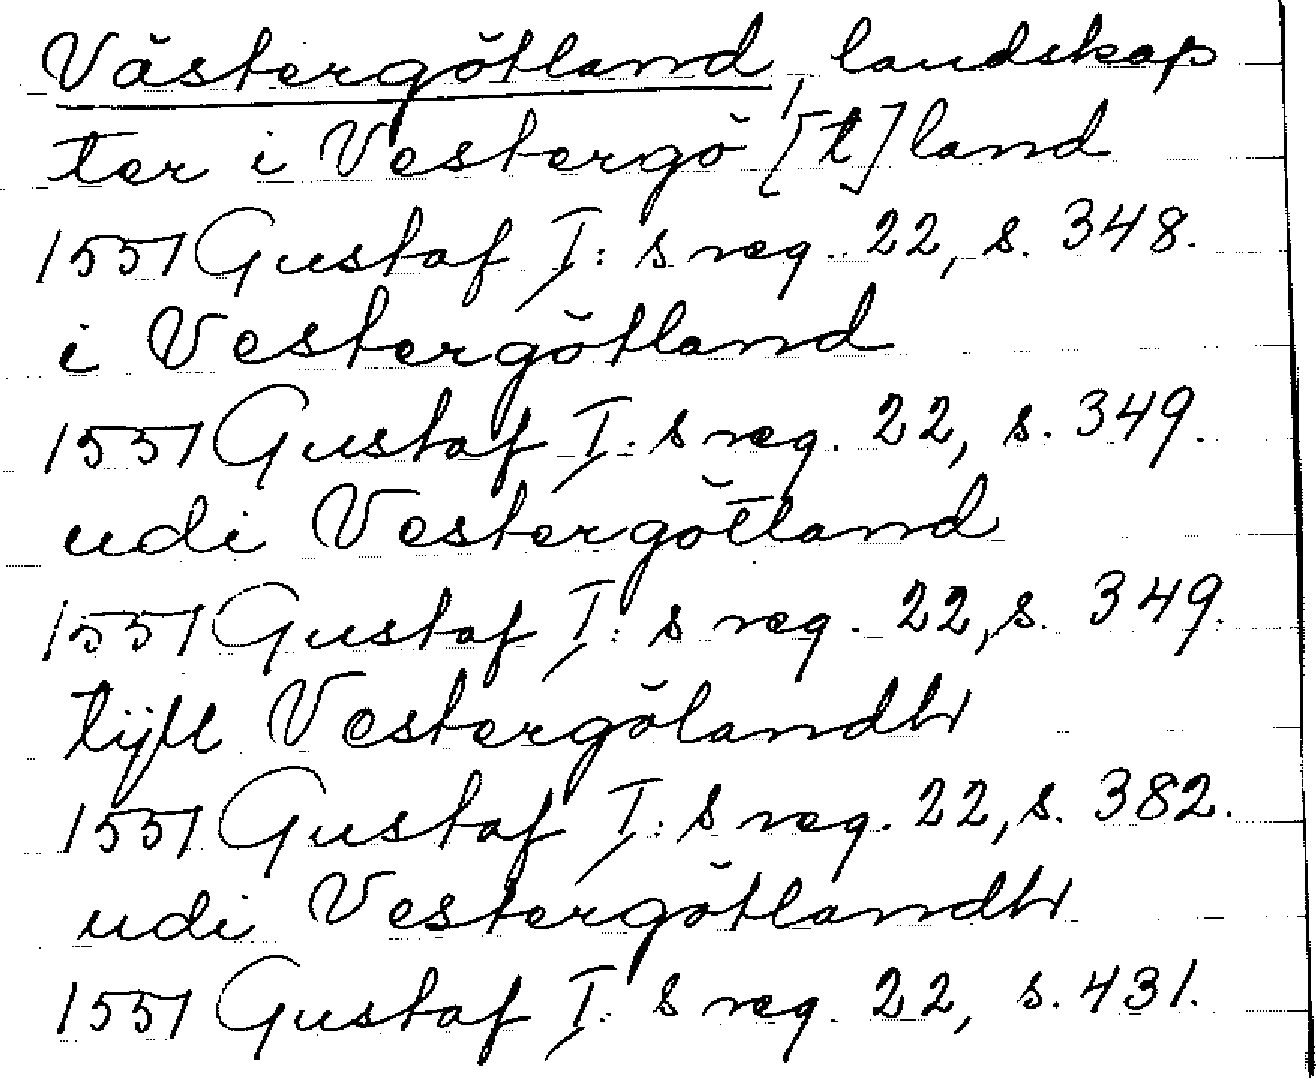 Västergötland, landskap
ter i Vestergö[t]land
1551 Gustaf I:s reg. 22, s. 348.
i Vestergötland
1551 Gustaf I:s reg. 22, s. 349.
udi Vestergötland
1551 Gustaf I:s reg. 22, s. 349.
tijll Vestergölandh
1551 Gustaf I:s reg. 22, s. 382.
udi Vestergötlandh
1551 Gustaf I:s reg. 22, s. 431.